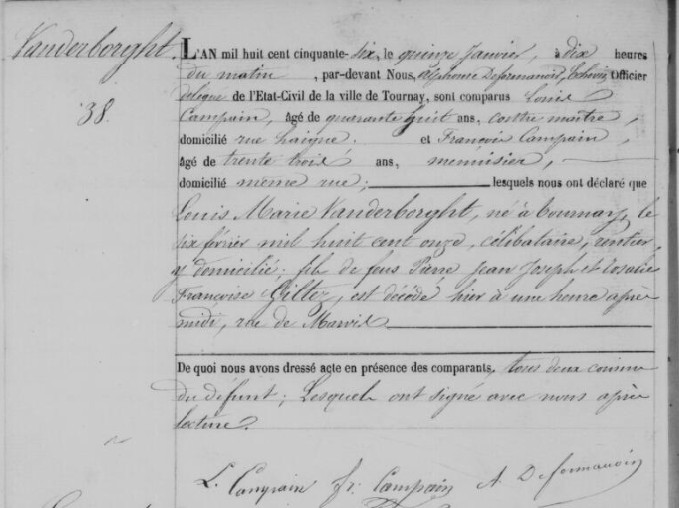 Vanderborght.
38.
L'AN mil huit cent cinquante-six, le quinze Janvier, à dix heures
du matin, par-devant Nous, Alphonse Defernanoir, Echevin Officier
délégué de l'Etat-Civil de la ville de Tournay, sont comparus Louis
Campain, âgé de quarante huit ans, contre maître,
domicilié rue haigne. et François Campain,
âgé de trente trois ans, menuisier,
domicilié même rue; lesquels nous ont déclaré que
Louis Marie Vanderborght, né à Tournay, le
six février mil huit cent onze, célibataire, rentier,
y domicilié; fils de feus Pierre Jean Joseph et Rosalie
Françoise Giltez, est décédé hier à une heure après
midi, rue de Marvis
De quoi nous avons dressé acte en présence des comparants, tous deux cousins
du défunt; Lesquels ont signé avec nous après
lecture.
L. Campain fr. Campain A.